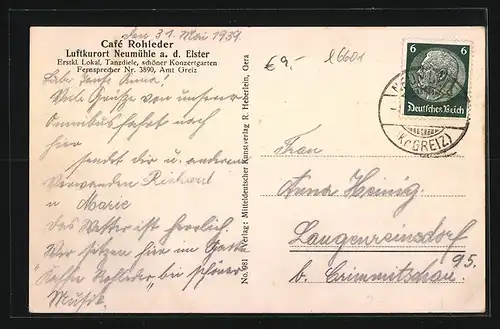 den 31. Mai 1939.
Café Rohleder
Luftkurort Neumühle a. d. Elster
Erstkl. Lokal, Tanzdiele, schöner Konzertgarten
Fernsprecher Nr. 3890, Amt Greiz
Liebe Tante Anna!
Viele Grüsse von unserer
Omnibusfahrt nach
hier
sendet dir u. anderen
Verwanden Richard
u Marie
Das Wetter ist herrlich.
Wir sitzen hier im Garten
"Kaffee Rohleder" bei schöner
Musik.
No. 981 Verlag: Mitteldeutscher Kunstverlag R. Heberlein, Gera
€ 9,-
l6601
6 6
Deutsches Reich
(Kr. GREIZ)
Frau
Anna Heinig.
Langenreinsdorf
b. Crimmitschau 95.